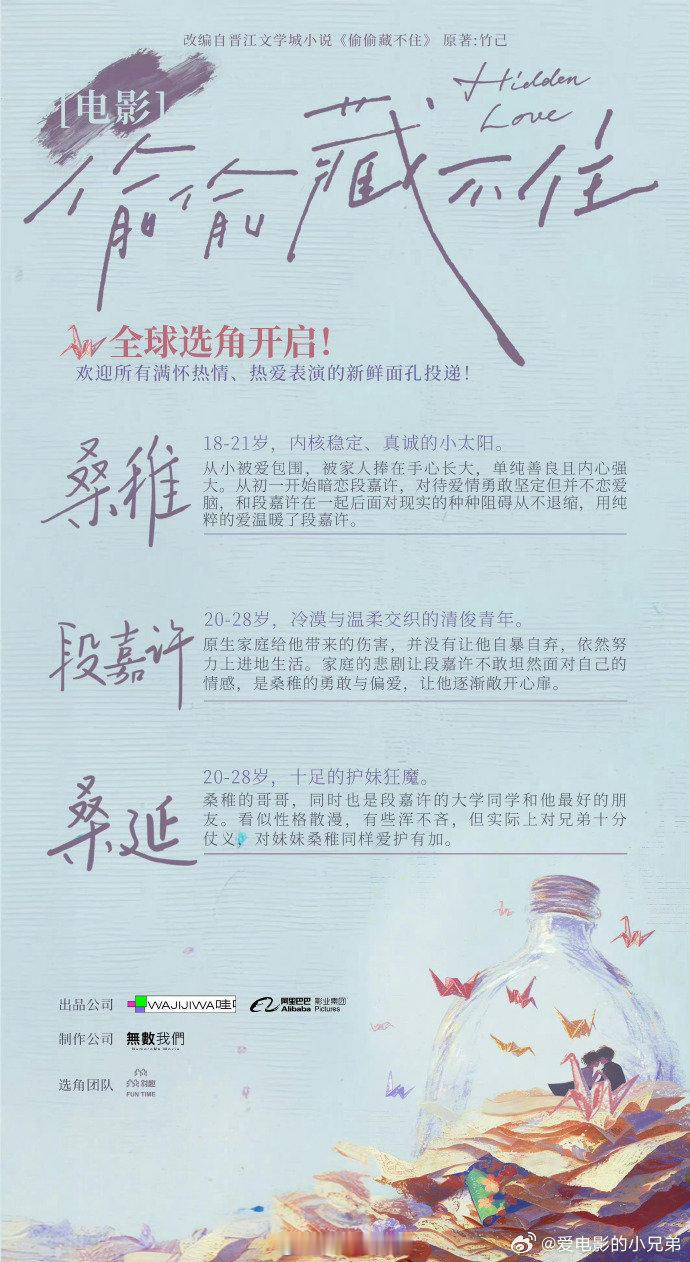 改编自晋江文学城小说《偷偷藏不住》 原著:竹已
[电影]
Hidden
Love
偷偷藏不住
全球选角开启!
欢迎所有满怀热情、热爱表演的新鲜面孔投递!
桑稚
18-21岁，内核稳定、真诚的小太阳。
从小被爱包围，被家人捧在手心长大，单纯善良且内心强
大。从初一开始暗恋段嘉许，对待爱情勇敢坚定但并不恋爱
脑，和段嘉许在一起后面对现实的种种阻碍从不退缩，用纯
粹的爱温暖了段嘉许。
段嘉许
20-28岁，冷漠与温柔交织的清俊青年。
原生家庭给他带来的伤害，并没有让他自暴自弃，依然努
力上进地生活。家庭的悲剧让段嘉许不敢坦然面对自己的
情感，是桑稚的勇敢与偏爱，让他逐渐敞开心扉。
桑延
20-28岁，十足的护妹狂魔。
桑稚的哥哥，同时也是段嘉许的大学同学和他最好的朋
友。看似性格散漫，有些浑不吝，但实际上对兄弟十分
仗义，对妹妹桑稚同样爱护有加。
出品公司 WAJIJIWA哇 阿里巴巴 影业集团
Alibaba Pictures
制作公司 無數我們
选角团队
FUN TIME
@爱电影的小兄弟